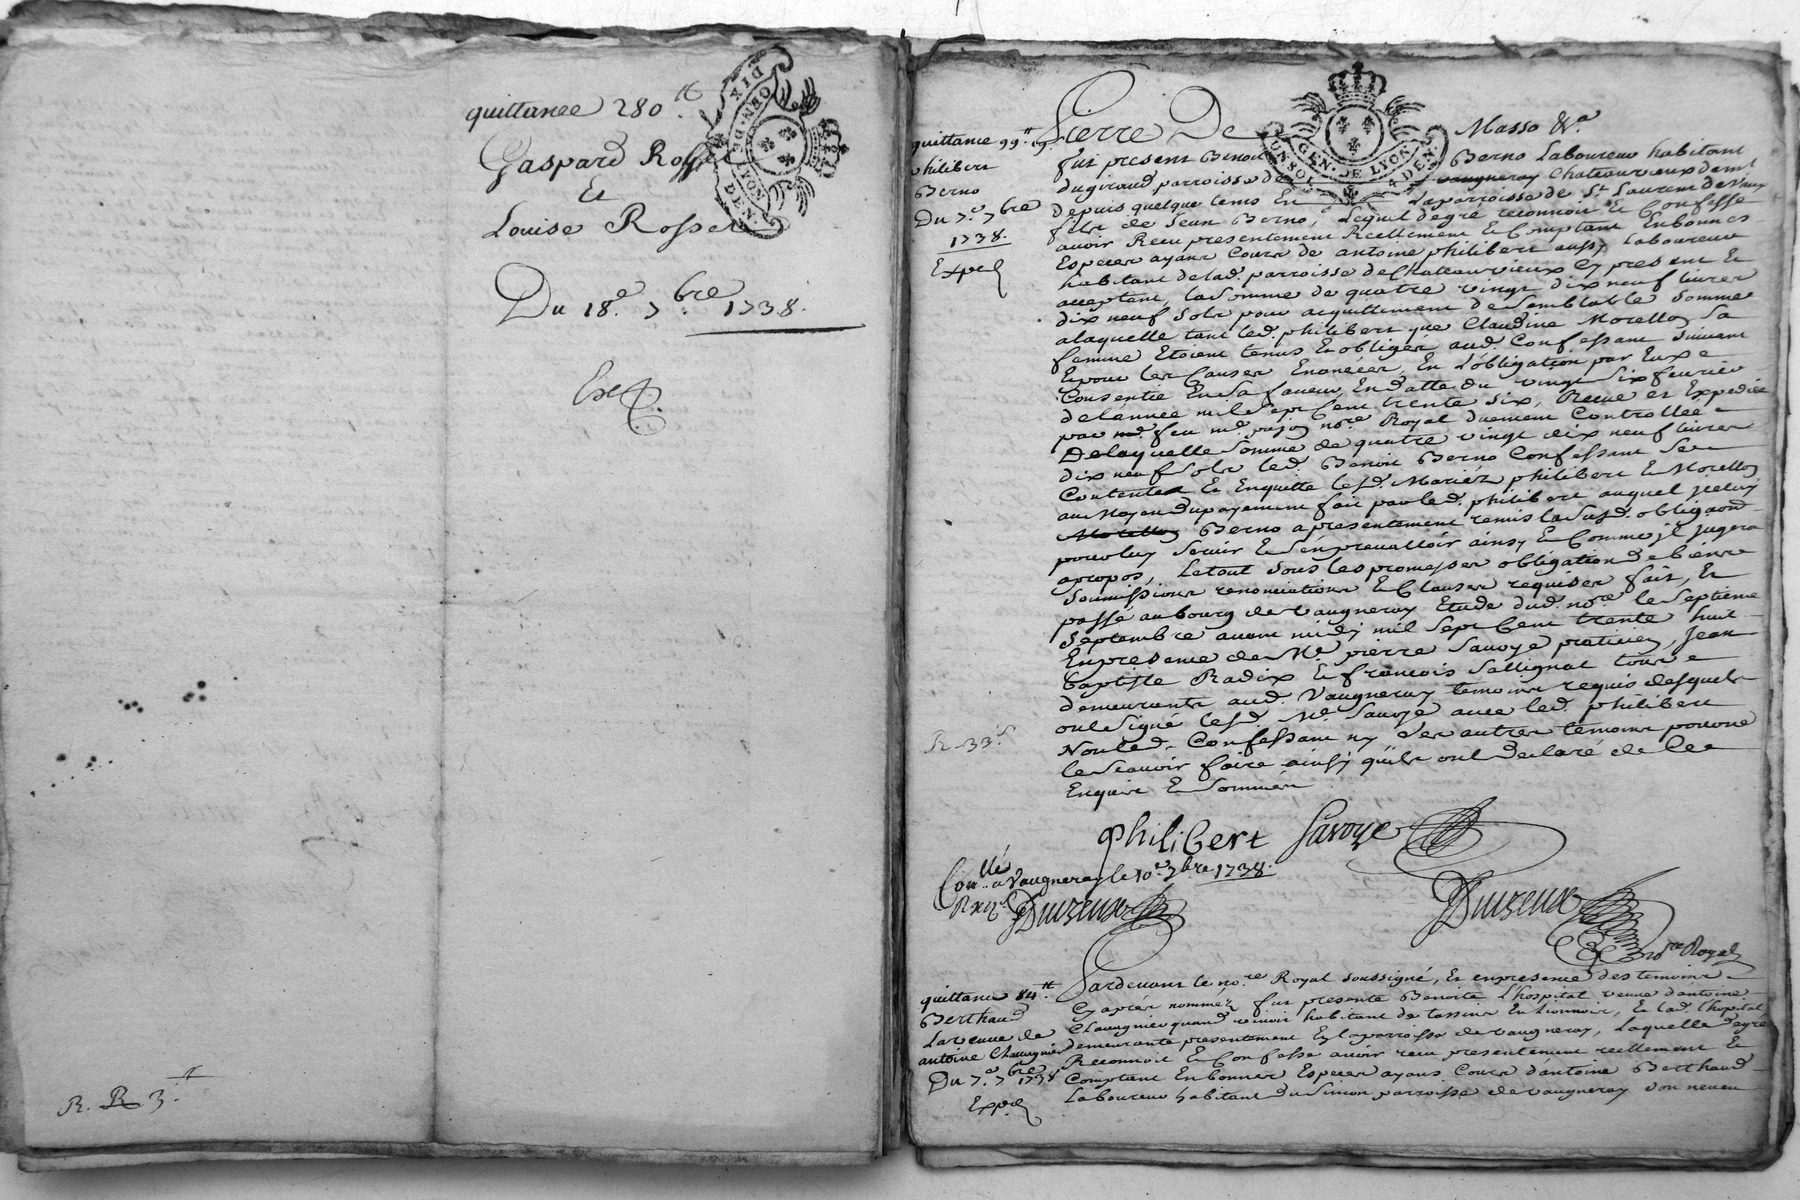 quittance 280.tt
Gaspard Rosset
Et
Louise Rosset
Du 18.e 7.bre 1738.
Exp.
R. 3.tt
DIX DEN. GEN. DE LYON
GEN. DE LYON.
UN SOL 4 DEN.
quittance 99.tt 19.s
philibert
Berno
Du 7.e 7bre
1738.
Exped
Pierre De Masso &.a
fut present Benoit Berno Laboureur habitant
dugiraud parroisse de vaugneray Chateauvieux demt
depuis quelque tems En Laparroisse de St Laurent de Vaux
fils de Jean Berno, Lequel de gré reconnoit Et Confesse
avoir Receu presentement Reellement Et Comptant Enbonnes
Especes ayant Cours de antoine philibert aussy Laboureur
habitant delad. parroisse de Chateauvieux Cy present Et
acceptant, La Somme de quatre vingt dix neuf Livres
dix neuf Sols pour acquittement de Semblable Somme
alaquelle tant led. philibert que Claudine Morellon Sa
femme Etoient tenus Et obligés aud. Confessant Suivant
Et pour les Causes Enoncées En L'obligation par Eux
Consentie En Sa faveur En datte du vingt Six fevrier
de lannée mil Sept Cent trente Six, Receue et Expediée
par feu me. pajon no.re Royal duement Controllée
De laquelle Somme de quatre vingt dix neuf Livres
dix neuf Sols led. Benoit Berno Confessant Se
Contente Et Enquitte lesd. Mariés philibert Et Morellon
au Moyen du payement fait par led. philibert auquel jceluy
Berno a presentement remis La Susd. obligaon
pour luy Servir Et S'en prevalloir ainsy Et Comme jl jugera
apropos, Le tout Sous les promesses obligation de biens
Soumissions renonciations Et Clauses requises fait, Et
passé au bourg de Vaugneray Etude dud. no.re le Septieme
Septembre avant midy mil Sept Cent trente huit
En presence de Me. pierre Savoye praticien, Jean
Baptiste Radix Et francois Sallignat tous
demeurants aud. Vaugneray temoins requis desquels
ont Signé lesd. Me. Savoye avec led. philibert
Non led. Confessant ny Les autres temoins pour ne
le Scavoir faire ainsy qu'ils ont declaré de Ce
Enquis Et Sommés
R. 33.s
philibert Savoye
Con.llé a Vaugneray le 10.e 7bre 1738.
Duizeux
Duizeux
no.re Royal
quittance 84.tt
Berthaud
La veuve de
antoine Chaugnier
Du 7.e 7bre 1738
Exped
Pardevant le no.re Royal Soussigné, Et en presence des temoins
Cy aprés nommés fut presente Benoite L'hospital veuve d'antoine
Chaugnier quand vivoit habitant de tassins En Lionnois, Et lad. L'hospital
demeurante presentement En laparroisse de vaugneray, Laquelle de gré
Reconnoit Et Confesse avoir receu presentement reellement Et
Comptant En bonnes Especes ayants Cours d'antoine Berthaud
Laboureur habitant du Simon parroisse de vaugneray Son neveu